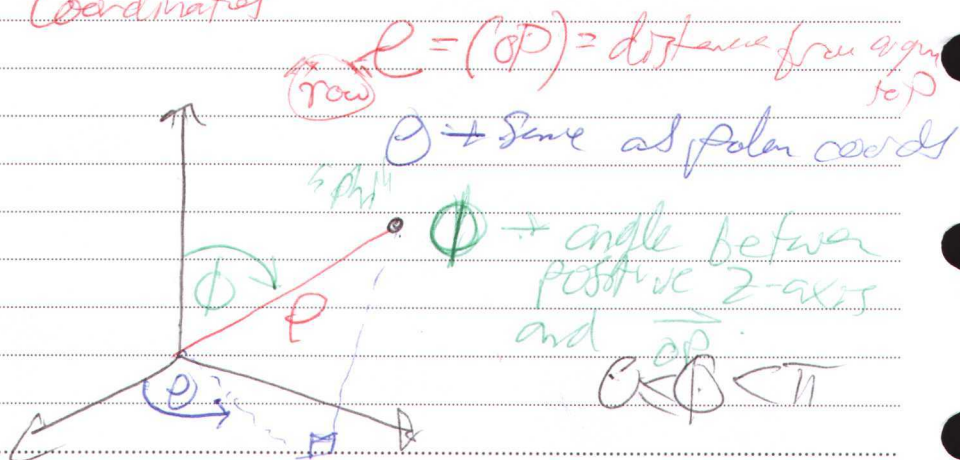 Coordinates
ρ = (OP) = distance from origin
(row) to P
θ → same as polar coords
"phi"
ϕ → angle between
positive z-axis
and OP
0<ϕ<π
ϕ
ρ
θ